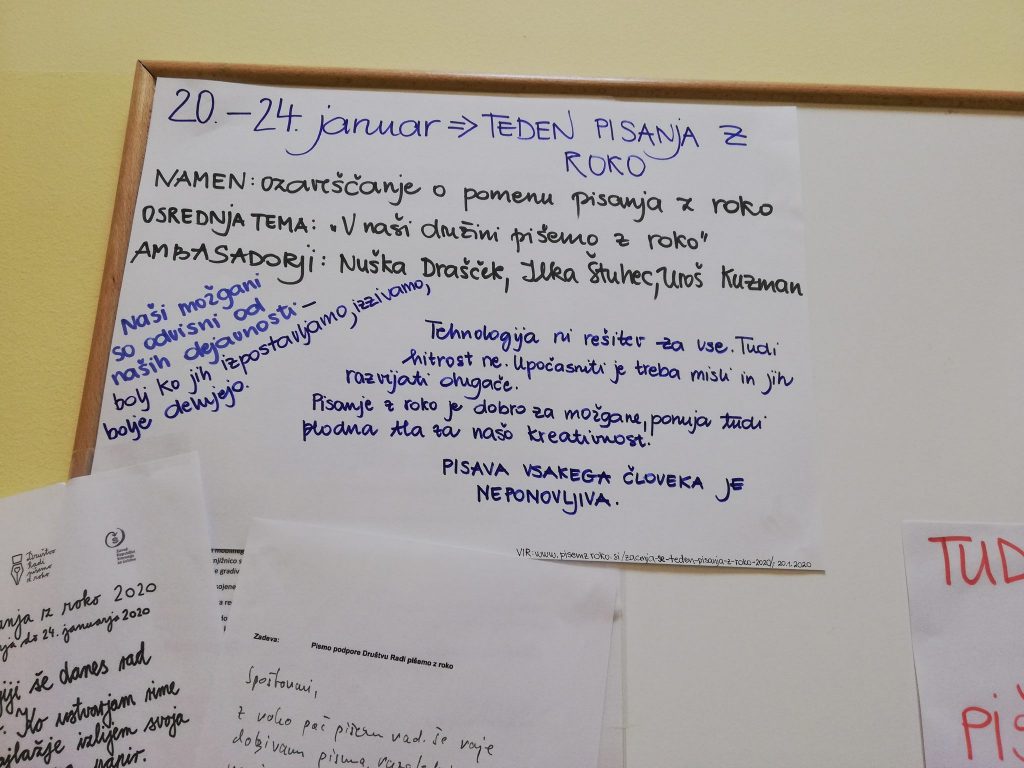 20. – 24. januar ⇒ TEDEN PISANJA Z
ROKO
NAMEN: ozaveščanje o pomenu pisanja z roko
OSREDNJA TEMA: "V naši družini pišemo z roko"
AMBASADORJI: Nuška Drašček, Ilka Štuhec, Uroš Kuzman
Naši možgani
so odvisni od
naših dejavnosti –
bolj ko jih izpostavljamo, izzivamo,
bolje delujejo.
Tehnologija ni rešitev za vse. Tudi
hitrost ne. Upočasniti je treba misli in jih
razvijati drugače.
Pisanje z roko je dobro za možgane, ponuja tudi
plodna tla za našo kreativnost.
PISAVA VSAKEGA ČLOVEKA JE
NEPONOVLJIVA.
VIR: www.pisemzroko.si/zacnja-se-teden-pisanja-z-roko-2020/; 20.1.2020
Društvo
Radi
pišemo
z roko
anja z roko 2020
ja do 24. januarja 2020
iji še danes rad
Ko ustvarjam rime
ajlažje izlijem svoja
papir.
mobilnega
njižnico s
e gradiv
sojene
a re
do
Zadeva: Pismo podpore Društvu Radi pišemo z roko
Spoštovani,
z roko pač pišem rad. Še raje
dobivam pisma,
TUD
PIŠ